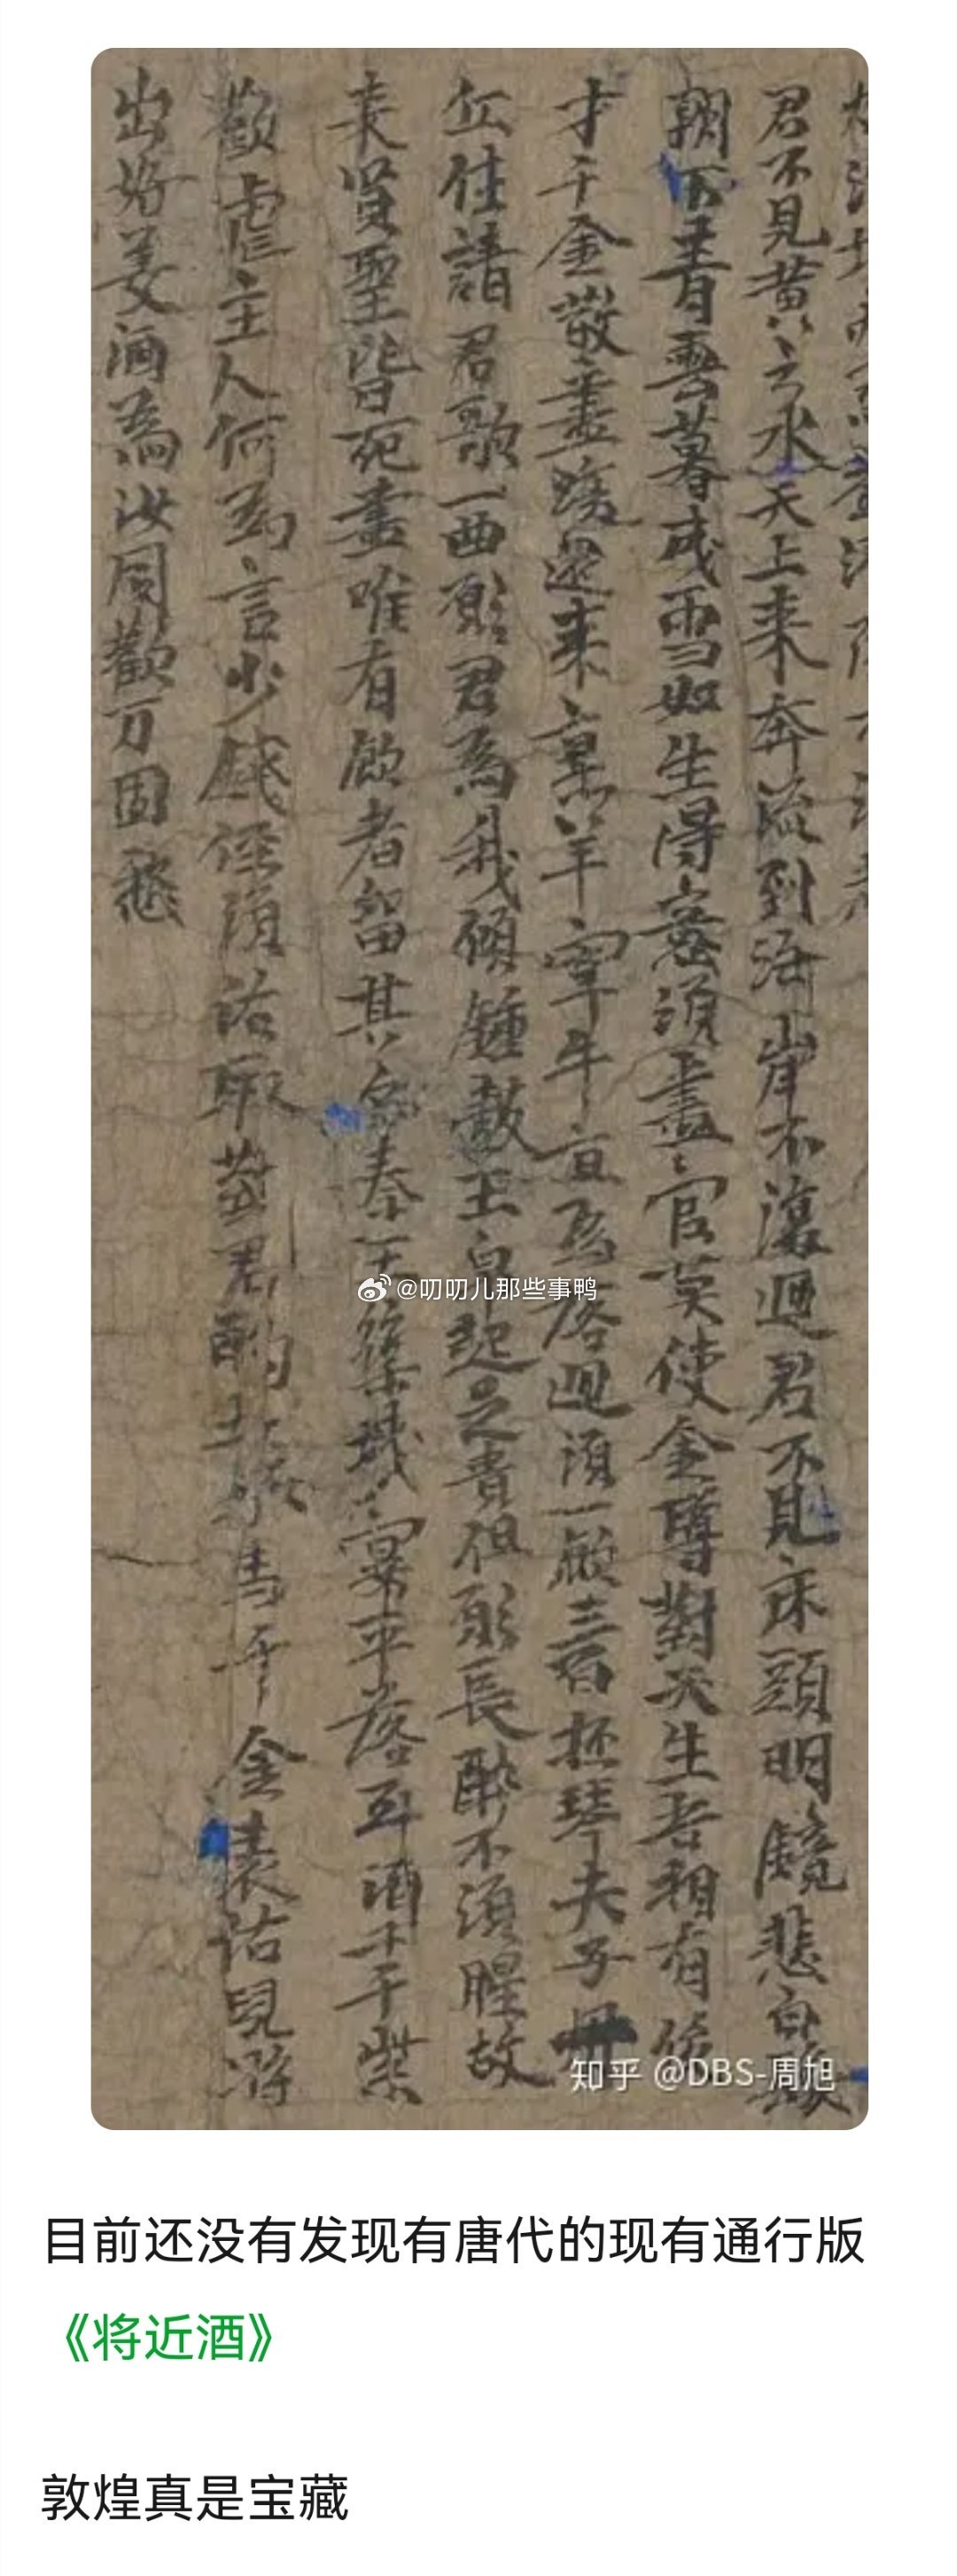 君不見黄之水天上来奔流到海岸不復迴君不見床頭明鏡悲白髮
朝青雲暮成雪如生得意須盡官莫使金罇對天生吾桐有
才千金散盡還来羊宰牛且為落迴須一飲三百杯琴夫子
丘請君歌一曲願君為我傾鍾皷玉足貴但願長醉不須醒故
来賢聖皆死盡唯有飲者留其名奉王築城宴平落斗酒十千
歡虐主人何為言少錢徑須沽取對君酌五花馬千金裘沽兒将
出好美酒為汝同歡万固愁
@叨叨儿那些事鸭
知乎 @DBS-周旭
目前还没有发现有唐代的现有通行版
《将近酒》
敦煌真是宝藏